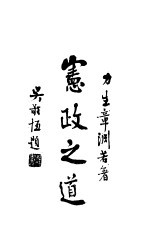 力生章淵若著
憲政之道
吳敬恆題